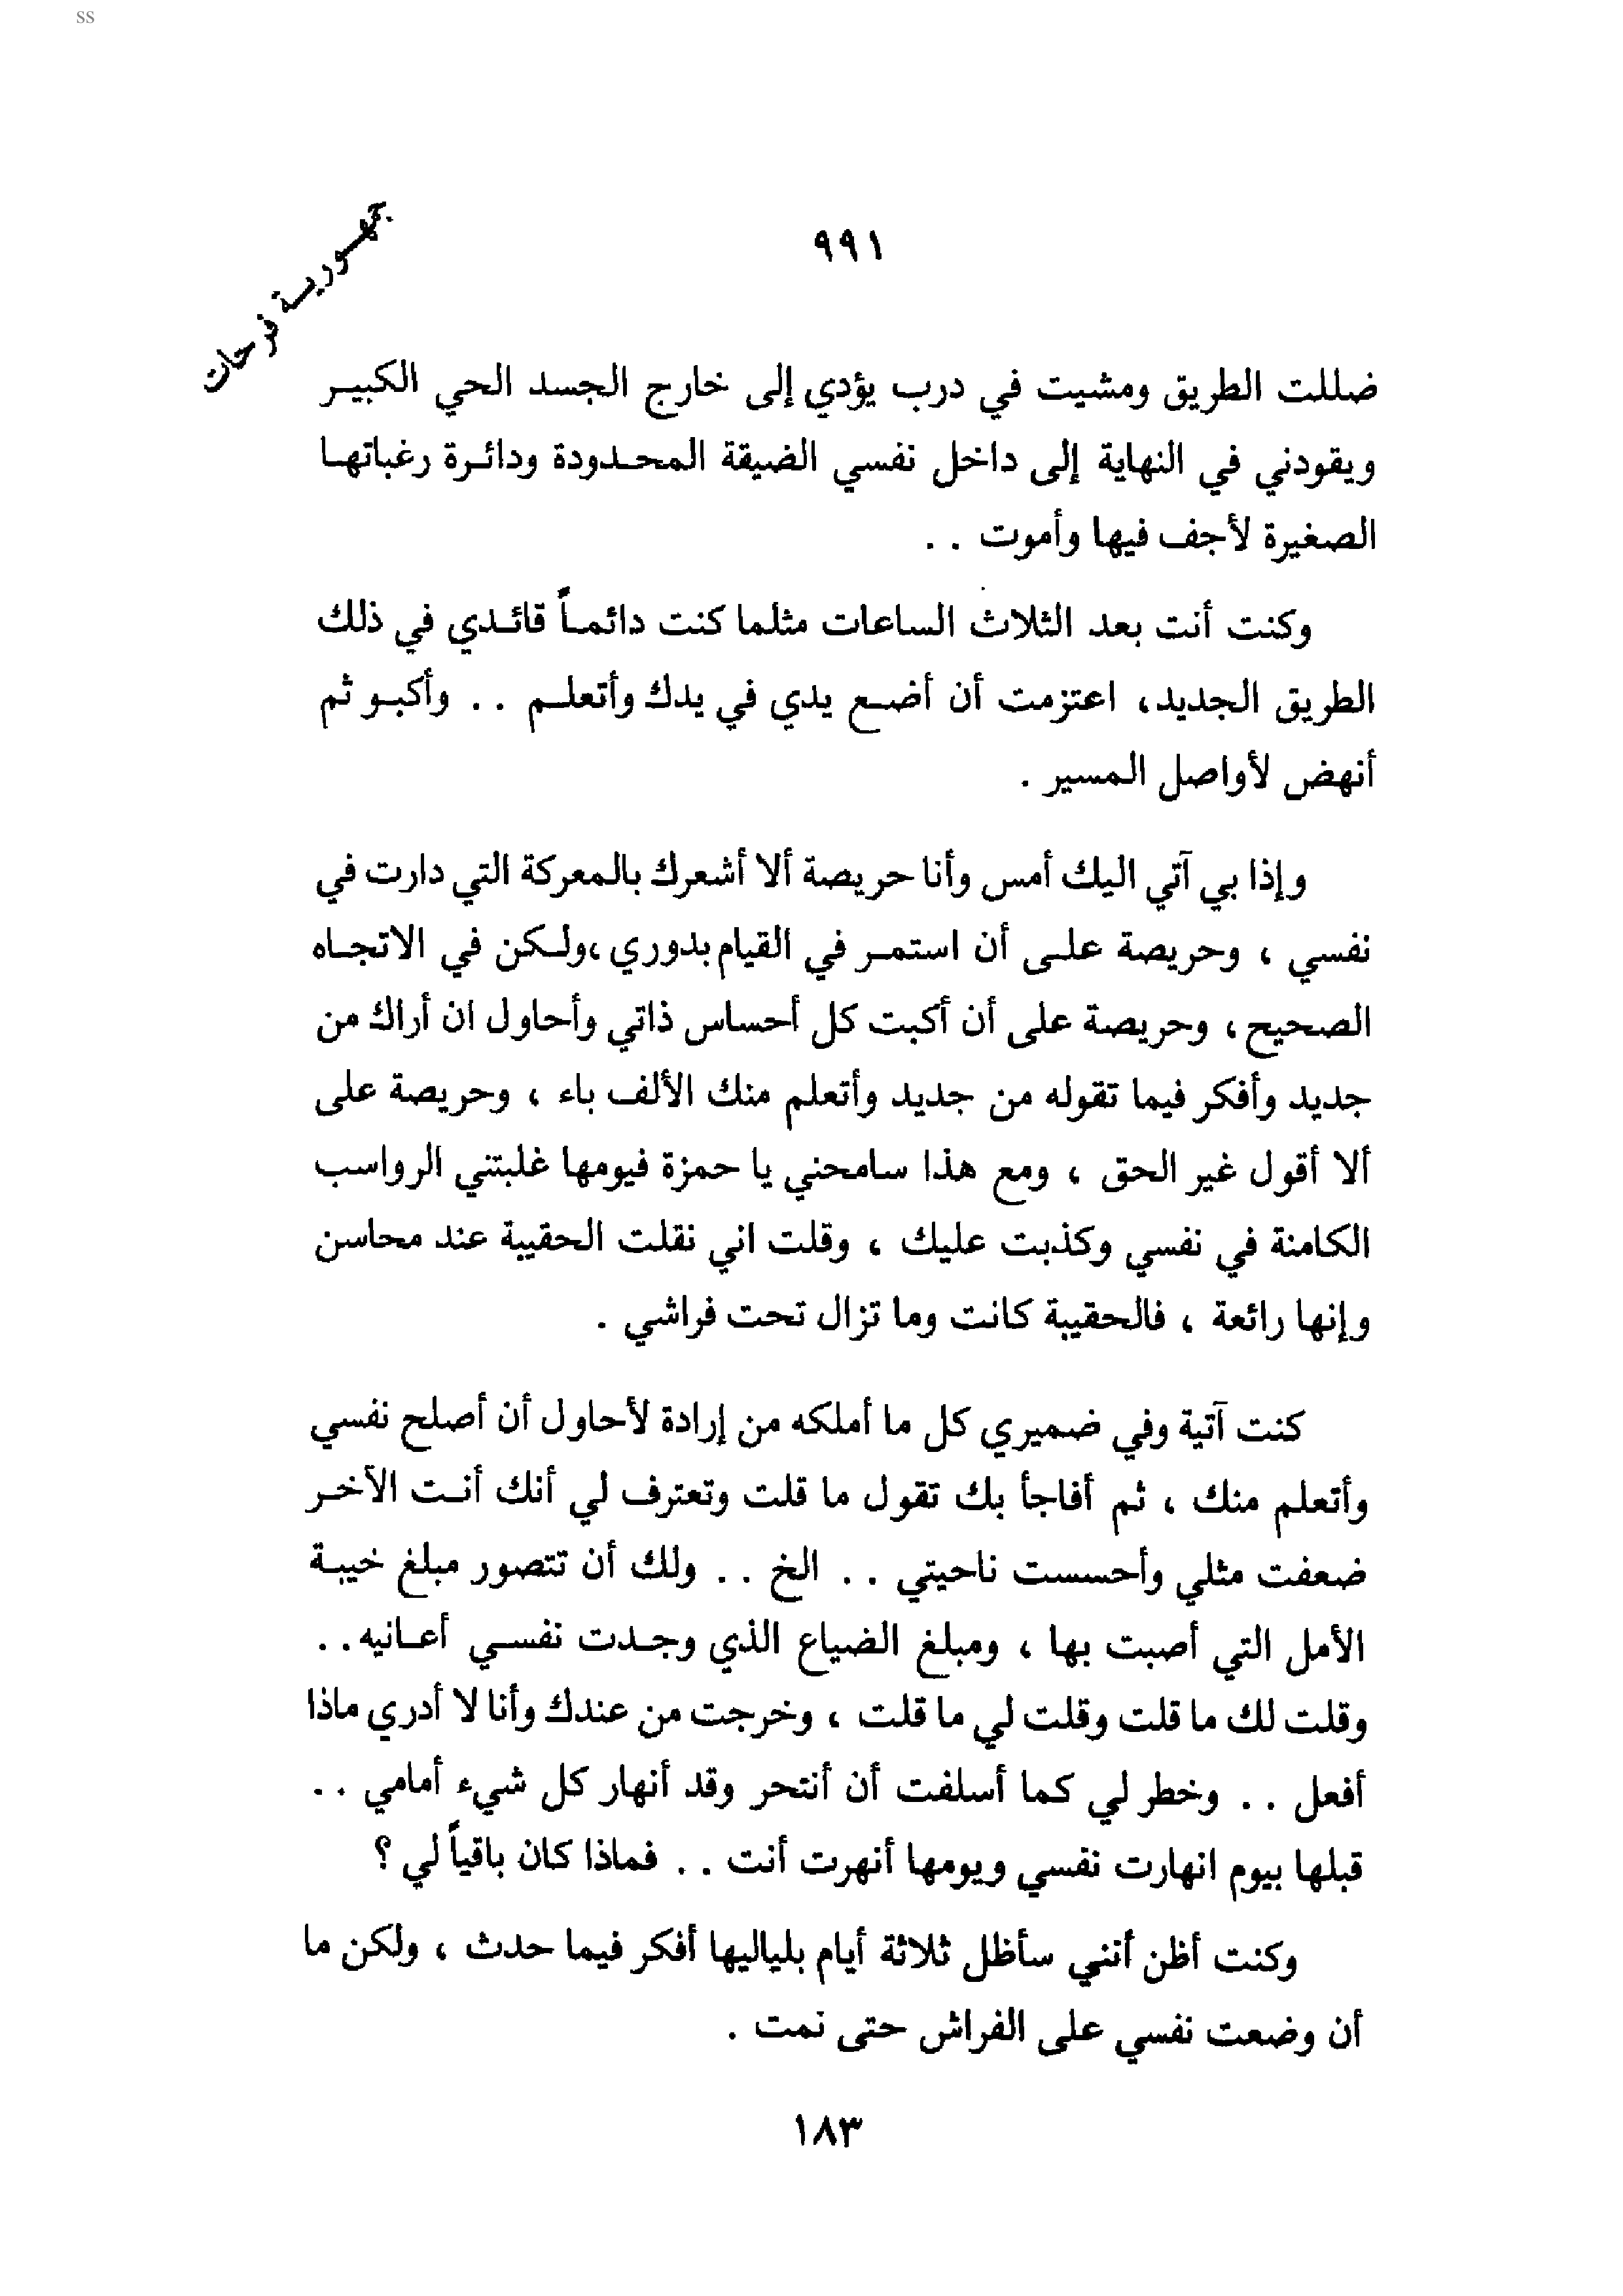 ss
جمهورية فرحات
٩٩١
ضللت الطريق ومشيت في درب يؤدي إلى خارج الجسد الحي الكبير
ويقودني في النهاية إلى داخل نفسي الضيقة المحدودة ودائرة رغباتها
الصغيرة لأجف فيها وأموت . .
وكنت أنت بعد الثلاث الساعات مثلما كنت دائماً قائدي في ذلك
الطريق الجديد، اعتزمت أن أضع يدي في يدك وأتعلم . . وأكبو ثم
أنهض لأواصل المسير .
وإذا بي آتي اليك أمس وأنا حريصة ألا أشعرك بالمعركة التي دارت في
نفسي ، وحريصة على أن استمر في القيام بدوري ،ولكن في الاتجاه
الصحيح ، وحريصة على أن أكبت كل أحساس ذاتي وأحاول ان أراك من
جديد وأفكر فيما تقوله من جديد وأتعلم منك الألف باء ، وحريصة على
ألا أقول غير الحق ، ومع هذا سامحني يا حمزة فيومها غلبتني الرواسب
الكامنة في نفسي وكذبت عليك ، وقلت اني نقلت الحقيبة عند محاسن
وإنها رائعة ، فالحقيبة كانت وما تزال تحت فراشي .
كنت آتية وفي ضميري كل ما أملكه من إرادة لأحاول أن أصلح نفسي
وأتعلم منك ، ثم أفاجأ بك تقول ما قلت وتعترف لي أنك أنت الآخر
ضعفت مثلي وأحسست ناحيتي . . الخ . . ولك أن تتصور مبلغ خيبة
الأمل التي أصبت بها ، ومبلغ الضياع الذي وجدت نفسي أعانيه . .
وقلت لك ما قلت وقلت لي ما قلت ، وخرجت من عندك وأنا لا أدري ماذا
أفعل . . وخطر لي كما أسلفت أن أنتحر وقد أنهار كل شيء أمامي . .
قبلها بيوم انهارت نفسي ويومها أنهرت أنت . . فماذا كان باقياً لي ؟
وكنت أظن أنني سأظل ثلاثة أيام بلياليها أفكر فيما حدث ، ولكن ما
أن وضعت نفسي على الفراش حتى نمت .
١٨٣